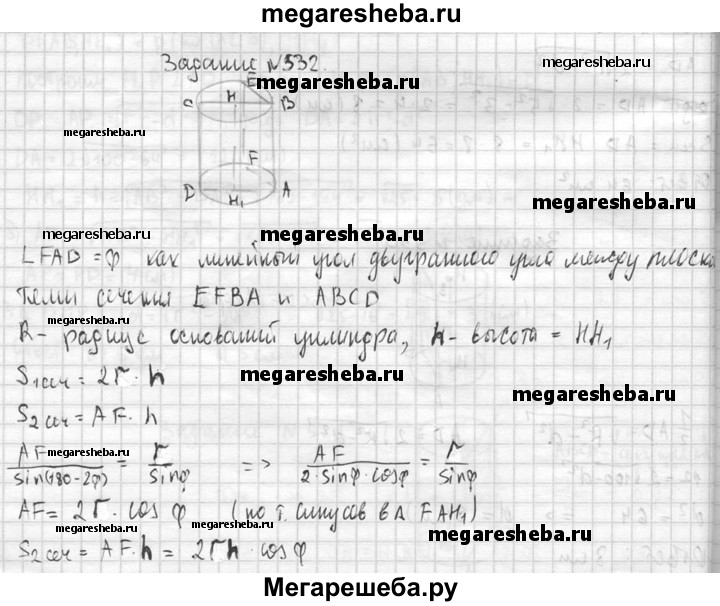 megaresheba.ru
Задание №532.
megaresheba.ru
megaresheba.ru
megaresheba.ru
E
C H B
megaresheba.ru
F
D H₁ A
megaresheba.ru
megaresheba.ru
megaresheba.ru
∠FAD = φ как линейный угол двугранного угла между плоскос
тями сечения EFBA и ABCD
megaresheba.ru
R - радиус оснований цилиндра, h - высота = HH₁
S₁сеч = 2r · h
megaresheba.ru
megaresheba.ru
S₂сеч = AF · h
megaresheba.ru
AF/sin(180-2φ) = r/sinφ => AF/2·sinφ·cosφ = r/sinφ
megaresheba.ru
AF = 2r · cos φ (по т. синусов в Δ FAH₁)
megaresheba.ru
megaresheba.ru
S₂сеч = AF · h = 2rh · cos φ
Мегарешеба.ру